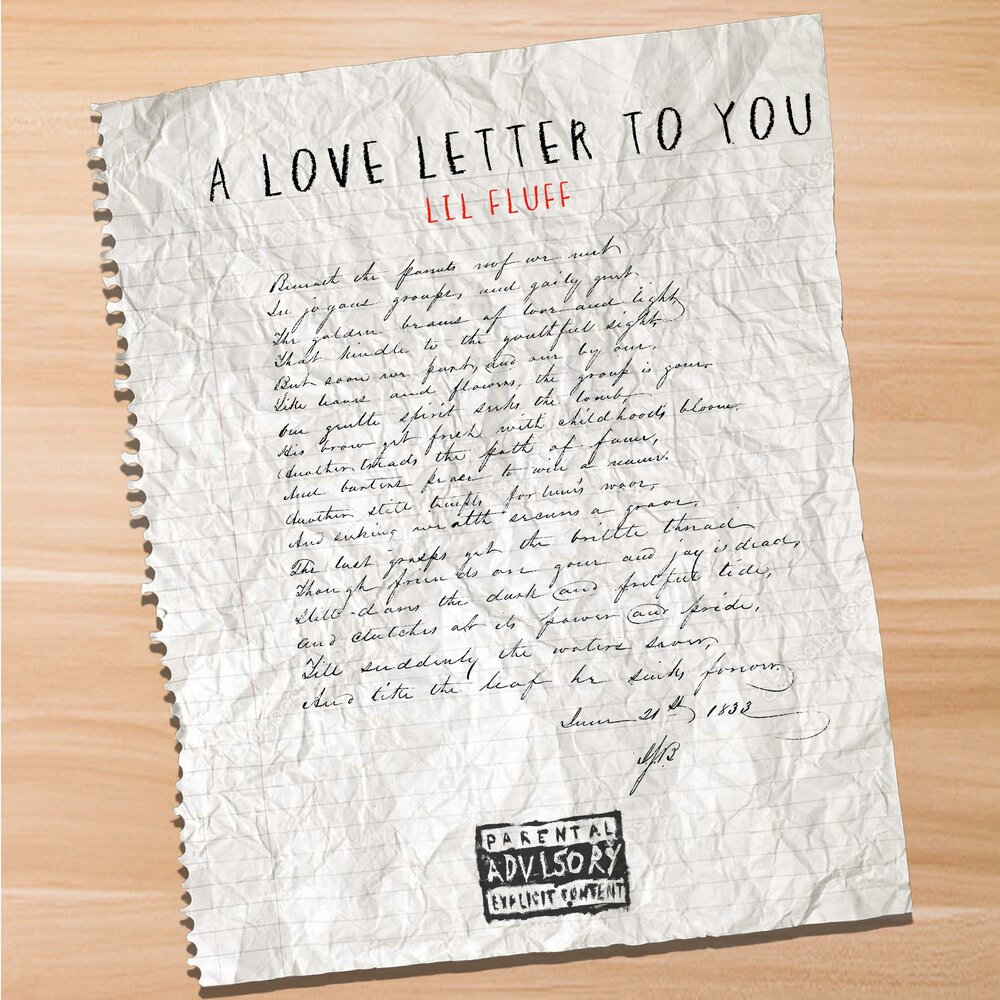 A LOVE LETTER TO YOU
LIL FLUFF
Beneath the parents roof we meet
In joyous groups, and gaily greet
The golden beams of love and light,
That kindle to the youthful sight,
But soon we part, and one by one,
Like leaves and flowers, the group is gone.
One gentle spirit seeks the tomb
His brow yet fresh with childhood's bloom.
Another treads the path of fame,
And barters peace to win a name.
Another still tempts fortune's wave,
And seeking wealth secures a grave,
The last grasps yet the brittle thread
Though friends are gone and joy is dead,
Still dares the dark and fretful tide,
and clutches at its power and pride,
Till suddenly the waters sever,
And like the leaf he sinks forever.
June 21st, 1833
PARENTAL
ADVISORY
EXPLICIT CONTENT